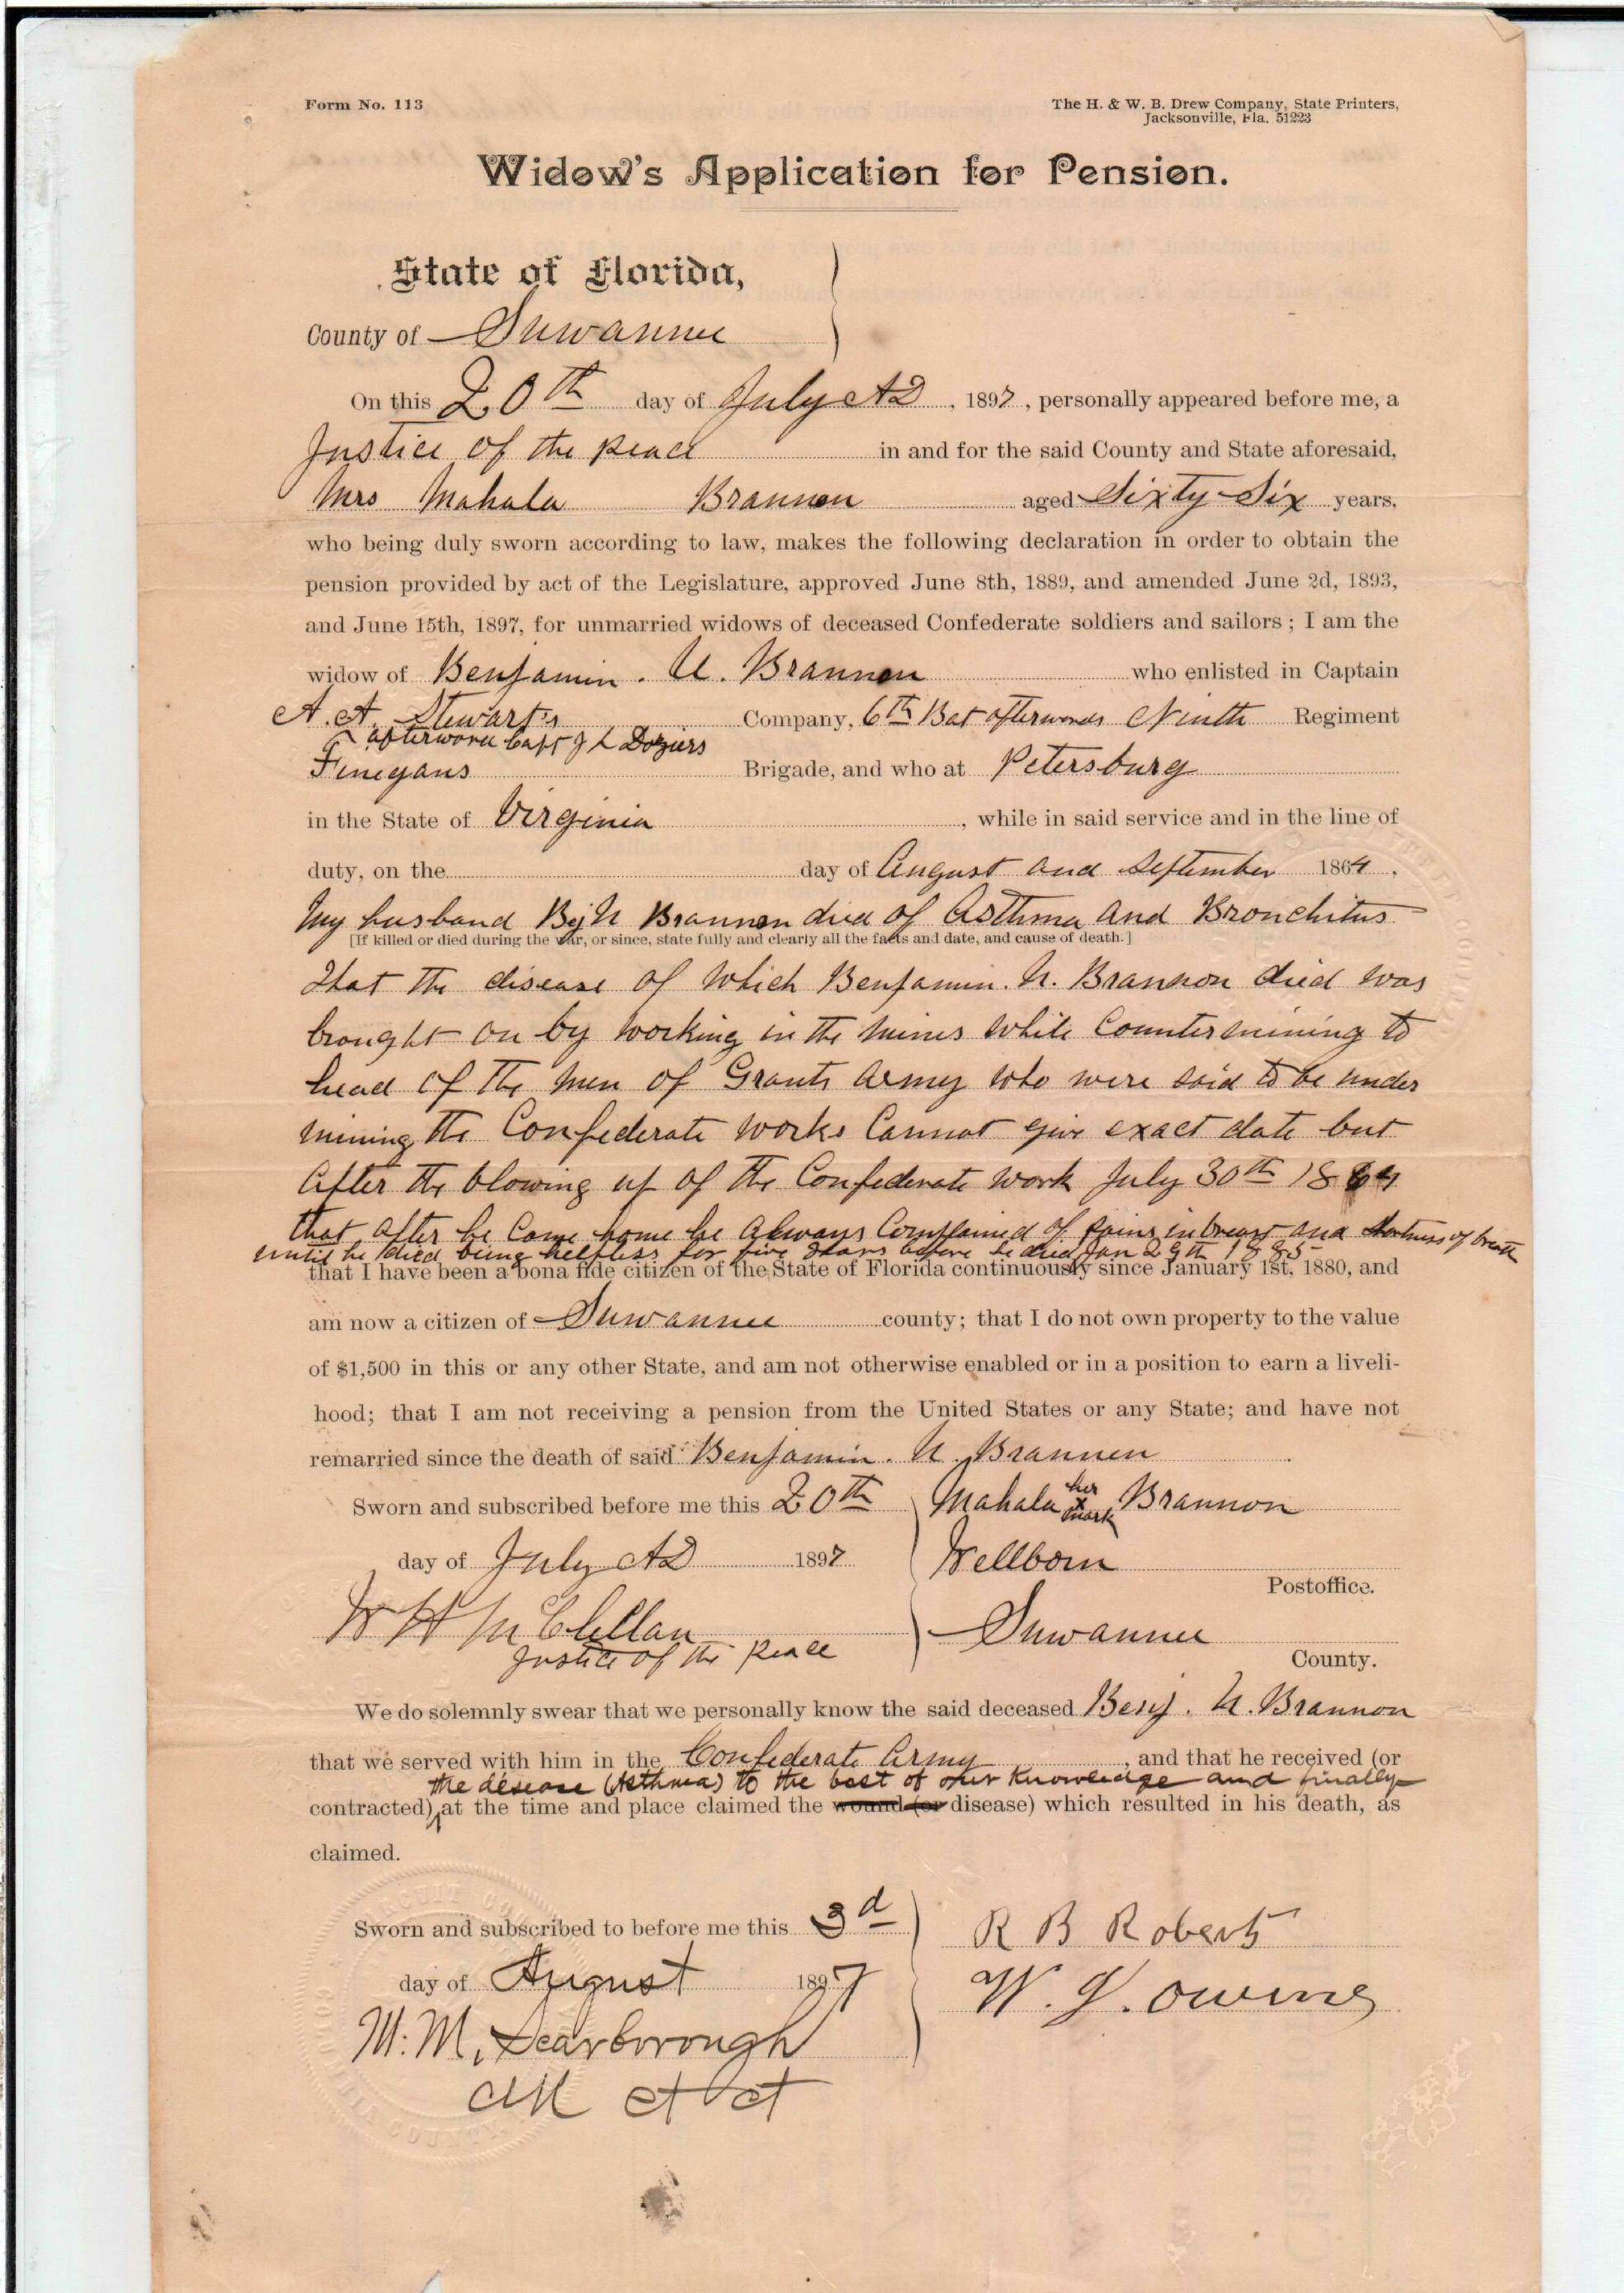 Form No. 113
The H. & W. B. Drew Company, State Printers,
Jacksonville, Fla. 51223
Widow's Application for Pension.
State of Florida,
County of Suwannee
On this 20th day of July AD, 1897, personally appeared before me, a
Justice of the Peace in and for the said County and State aforesaid,
Mrs Mahala Brannon aged Sixty-Six years,
who being duly sworn according to law, makes the following declaration in order to obtain the
pension provided by act of the Legislature, approved June 8th, 1889, and amended June 2d, 1893,
and June 15th, 1897, for unmarried widows of deceased Confederate soldiers and sailors; I am the
widow of Benjamin. U. Brannon who enlisted in Captain
A. A. Stewart's Company, 6th Bat afterwards Ninth Regiment
afterward Capt J L Doziers
Finegans Brigade, and who at Petersburg
in the State of Virginia, while in said service and in the line of
duty, on the day of August and September 1864,
My husband Bej N Brannon died of Asthma and Bronchitus
[If killed or died during the war, or since, state fully and clearly all the facts and date, and cause of death.]
That the disease of which Benjamin. N. Brannon died was
brought on by working in the mines while Countermining to
head of the men of Grants Army who were said to be under
mining the Confederate works Cannot give exact date but
After the blowing up of the Confederate work July 30th 1864
that after he Came home he always Complained of pains in breast and shortness of breath
until he died being helpless for five years before he died Jan 29th 1885
that I have been a bona fide citizen of the State of Florida continuously since January 1st, 1880, and
am now a citizen of Suwannee county; that I do not own property to the value
of $1,500 in this or any other State, and am not otherwise enabled or in a position to earn a liveli-
hood; that I am not receiving a pension from the United States or any State; and have not
remarried since the death of said Benjamin. N. Brannen
Sworn and subscribed before me this 20th Mahala her x mark Brannon
day of July AD 1897 Wellborn
Postoffice.
W H McClellan Suwannee
Justice of the Peace
County.
We do solemnly swear that we personally know the said deceased Benj. N. Brannon
that we served with him in the Confederate Army, and that he received (or
the disease (Asthma) to the best of our knowledge and finally
contracted) at the time and place claimed the wound (or disease) which resulted in his death, as
claimed.
Sworn and subscribed to before me this 3d R B Roberts
day of August 1897 W. J. Owens
M. M. Scarborough
Clk Ct Ct
CIRCUIT COURT
COLUMBIA COUNTY